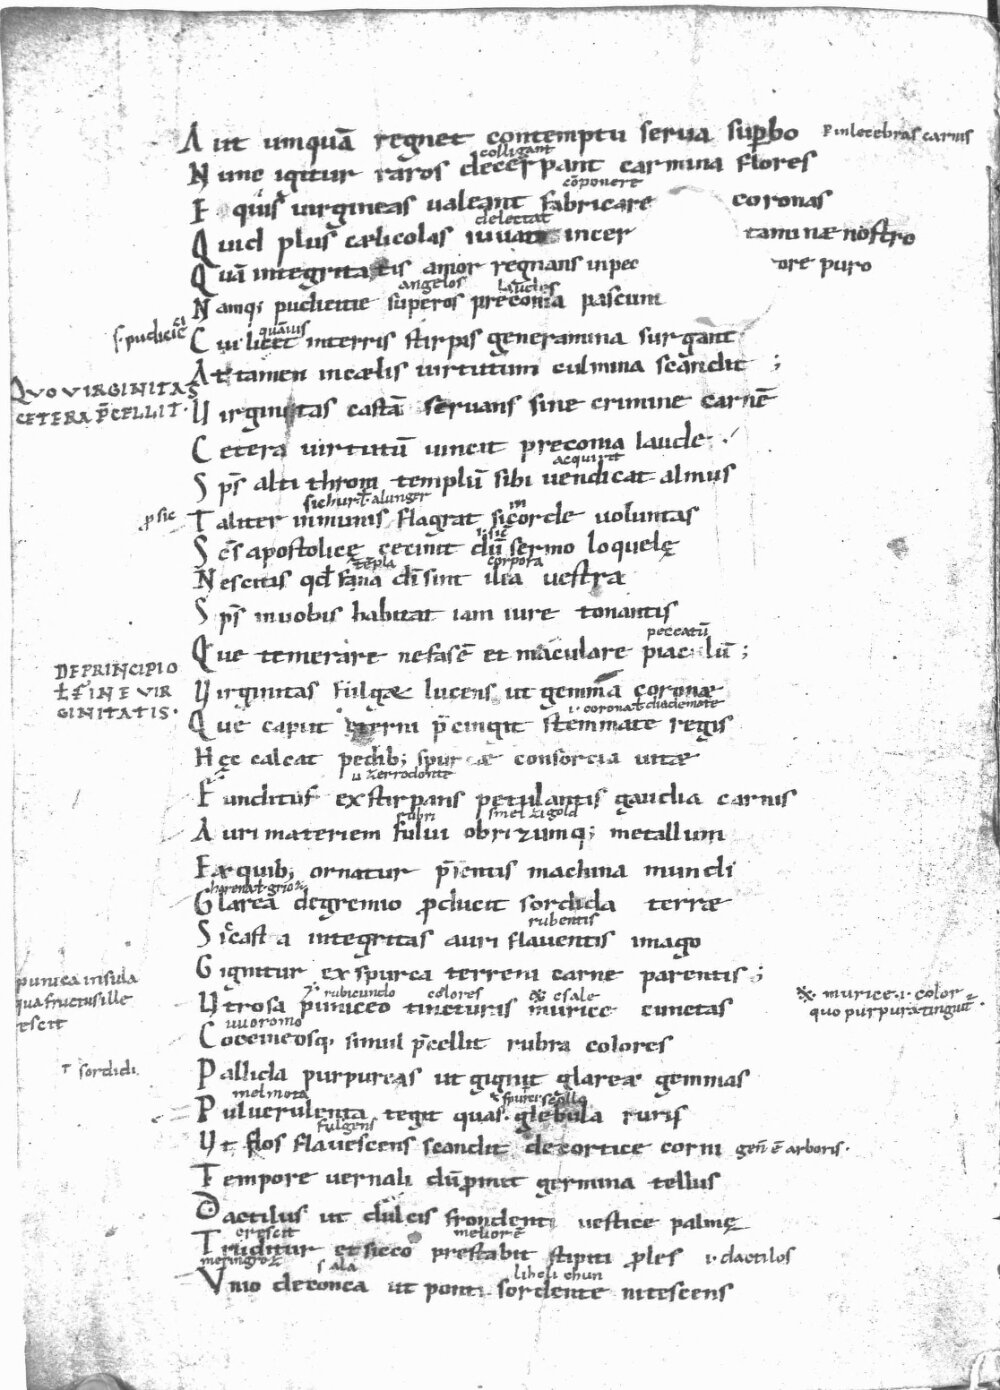 Aut umquā regnet contemptu serua suꝑbo
ꝑ inlecebras carnis
colligant
Nunc igitur raros decerpant carmina flores
cōponere
E quis uirgineas ualeant fabricare coronas
delectat
Quid plus cælicolas iuuat incer taminæ nostro
Quā integritatis amor regnans in pec ore puro
angelos laudes
Namq; pudicitie superos preconia pascunt
s. pudicicie
quāuis
Cui licet interris stirpis generamina surgant
Attamen incælis uirtutum culmina scandit ;
QVO VIRGINITAS
CETERA P̄CELLIT.
Virginitas castā seruans sine crimine carnē
Cetera uirtutū uincit preconia laude.
acquirit
Sp̄s alti throni templū sibi uendicat almus
Taliter inmunis flagrat si corde uoluntas
ꝑ sic
Sc̄s apostolicę cecinit dū sermo loquelę
tēpla corpora
Nescitis qđ fana dī sint ilia uestra
Sp̄s inuobis habitat iam iure tonantis
peccatū
Que temerare nefas ē et maculare piaculū ;
DE PRINCIPIO
Ł FINE VIR
GINITATIS.
Virginitas fulget lucens ut gemma coronæ
i. corona ł diademate
Que caput eterni p̄cingit stemmate regis
Hęc calcat pedib; spurcæ consorcia uitæ
Funditus exstirpans petulantis gaudia carnis
rubri
Auri materiem fului obrizumq; metallum
Ex quib; ornatur p̄sentis machina mundi
Glarea degremio ꝓducit sordida terræ
rubentis
Sic casta integritas auri flauentis imago
Gignitur ex spurca terreni carne parentis ;
punica insula
qua fructus ille
escit
rubicundo colores
Vt rosa puniceo tincturis murice cunctas
murice. i. color
quo purpura tinguit
Coccineosq; simul p̄cellit rubra colores
sordidi
Pallida purpureas ut gignit glarea gemmas
Puluerulenta tegit quas glebula ruris
fulgens
Vt flos flauescens scandit decortice corni
gen̄ ē arboris.
Tempore uernali dū ꝓmit germina tellus
Dactilus ut dulcis frondenti uestice palmę
crescit meliorē
Truditur et sicco prestabit stipiti ꝓles
i. dactilos
Vnio deconca ut ponti sordente nitescens